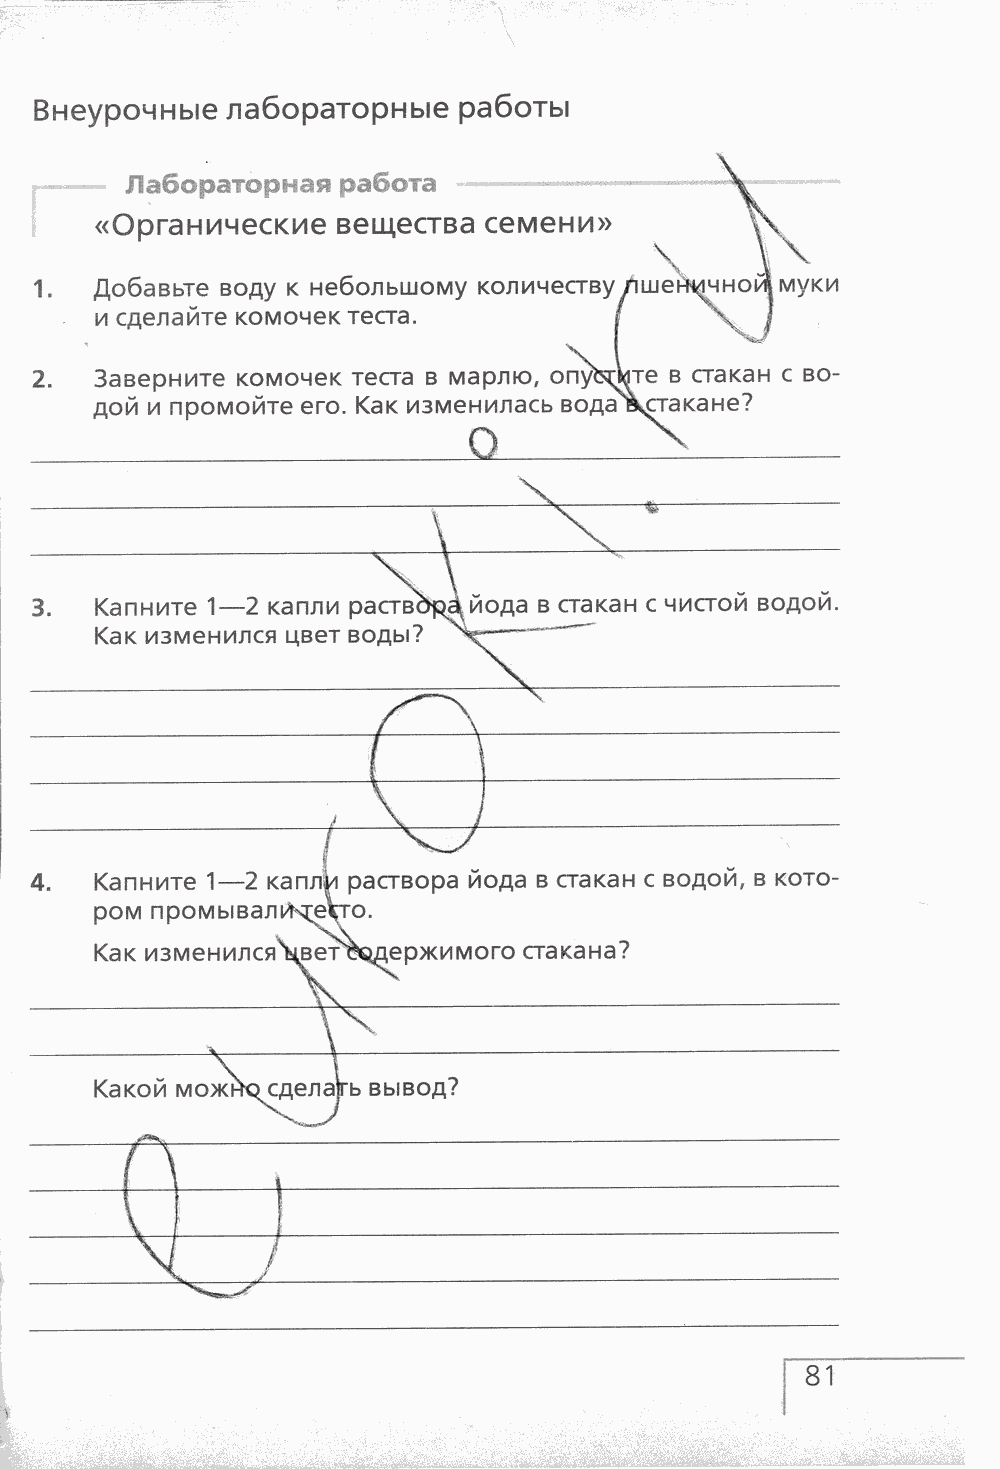 Внеурочные лабораторные работы
Лабораторная работа
«Органические вещества семени»
1. Добавьте воду к небольшому количеству пшеничной муки
и сделайте комочек теста.
2. Заверните комочек теста в марлю, опустите в стакан с во-
дой и промойте его. Как изменилась вода в стакане?
3. Капните 1—2 капли раствора йода в стакан с чистой водой.
Как изменился цвет воды?
4. Капните 1—2 капли раствора йода в стакан с водой, в кото-
ром промывали тесто.
Как изменился цвет содержимого стакана?
Какой можно сделать вывод?
81
euroki.ru